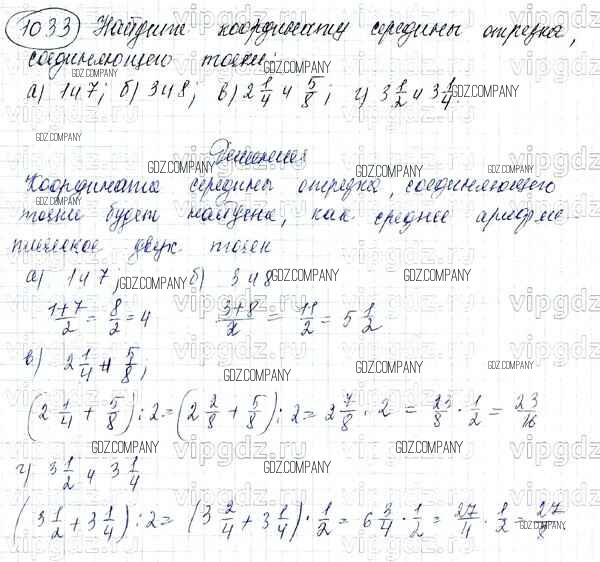 1033 Найдите координату середины отрезка,
соединяющего точки:
а) 1 и 7; б) 3 и 8; в) 2 1/4 и 5/8; г) 3 1/2 и 3 1/4.
Решение
Координата середины отрезка, соединяющего
точки будет найдена, как среднее арифме-
тическое двух точек
а) 1 и 7; б) 3 и 8
(1+7)/2 = 8/2 = 4 (3+8)/2 = 11/2 = 5 1/2
в) 2 1/4 и 5/8;
(2 1/4 + 5/8) : 2 = (2 2/8 + 5/8) : 2 = 2 7/8 : 2 = 23/8 · 1/2 = 23/16
г) 3 1/2 и 3 1/4
(3 1/2 + 3 1/4) : 2 = (3 2/4 + 3 1/4) · 1/2 = 6 3/4 · 1/2 = 27/4 · 1/2 = 27/8
GDZ.COMPANY
vipgdz.ru